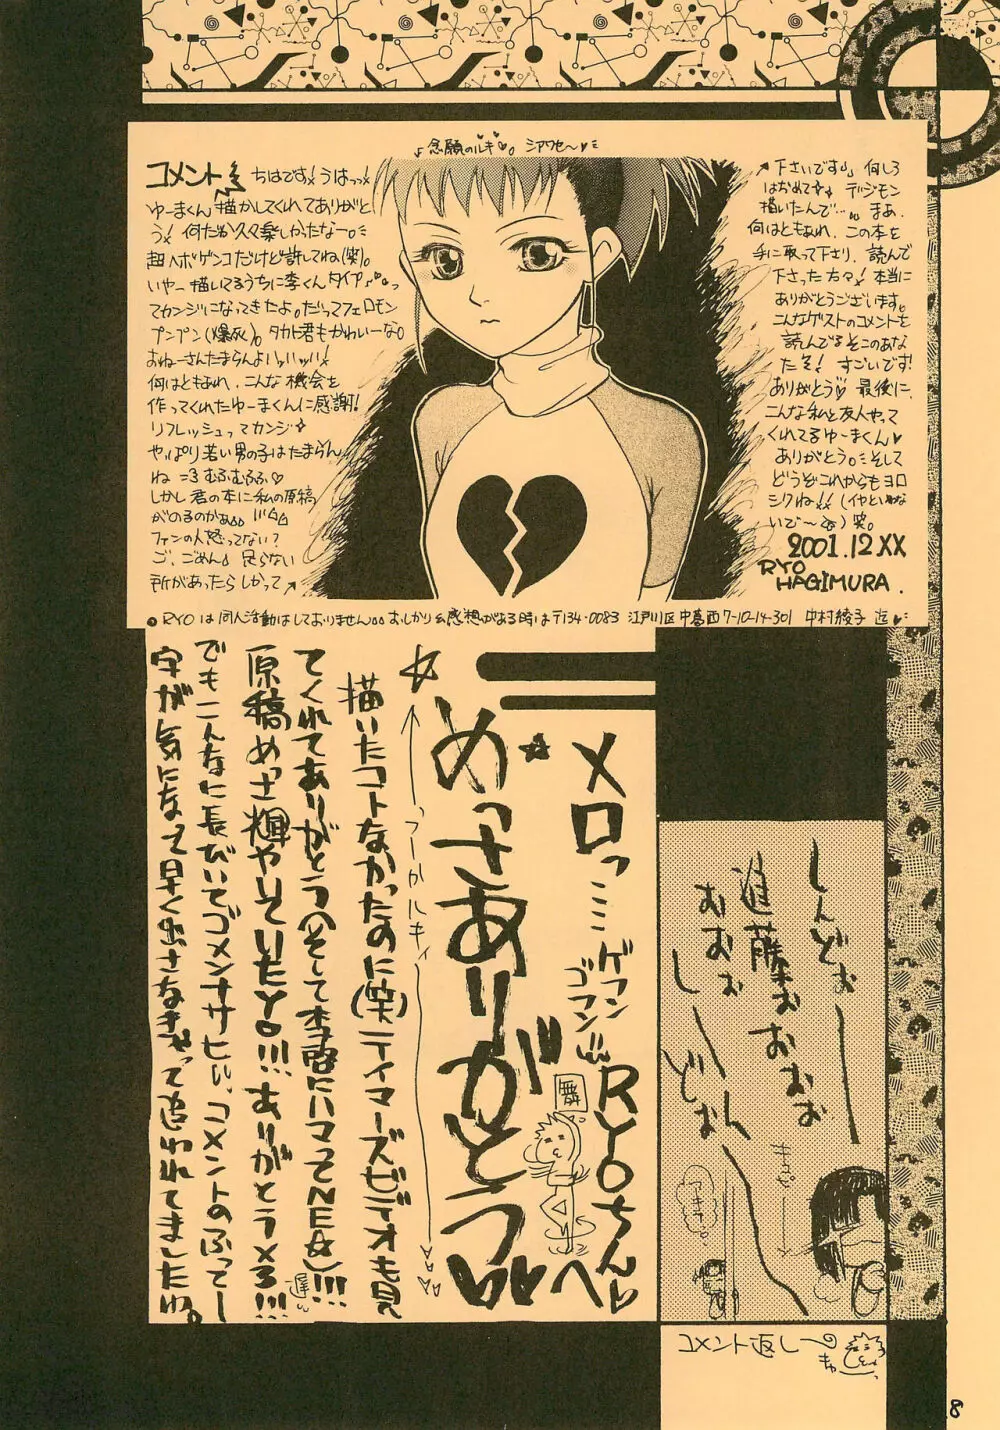 念願のルキ。シアワセ〜
コメント
ちはです!うはっっ!
ゆーまくん描かしてくれてありがと
う!何だか久々楽しかったなー。
超ヘボゲンコだけど許してね(笑)。
いやー描いてるうちに李くんタイプ
ってカンジになってきたよ。だってフェロモン
プンプン(爆死)。タカト君もかわいーな。
おねーさんたまらんよハァハァ!
何はともあれ、こんな機会を
作ってくれたゆーまくんに感謝!
リフレッシュってカンジ☆
やっぱり若い男の子はたまらん
ね =3 むふむふふ♡
しかし君の本に私の原稿
がのるのかぁ
ファンの人怒ってない?
ご、ごめん 足らない
所があったらしかって
下さいです 何しろ
はじめて デジモン
描いたんで…。まあ、
何はともあれ、この本を
手に取って下さり、読んで
下さった方々!本当に
ありがとうございます。
こんなゲストのコメントを
読んでるそこのあな
たぞ!すごいです!
ありがとう♡ 最後に、
こんな私と友人やって
くれてるゆーまくん♥
ありがとう。そして
どうぞこれからもヨロ
シクね!!(イヤといわな
いで〜)笑。
2001.12XX
RYO
HAGIMURA.
RYOは同人活動はしておりません おしかり&感想がある時は〒134-0083 江戸川区中葛西7-10-14-301 中村綾子 迄
しんどぉー
進藤ぉぉぉぉ
おおぉ
しーんどぉ
コメント返し〜
メロっ ミミ ゲフンゴフン!!! RYOちんへ♡
舞
☆めっさありがとう♥♥
描いたコトなかったのに(笑)テイマーズビデオも見
てくれてありがとう(そして李君にハマってNE☆)!!!
遅い
原稿めっさ輝やいていたYO!!!ありがとうメろ!!!
でもこんなに長びいてゴメンナサヒぃ。コメントのふってー
字が気になって早く出さなきゃって追われてましたわ。
8